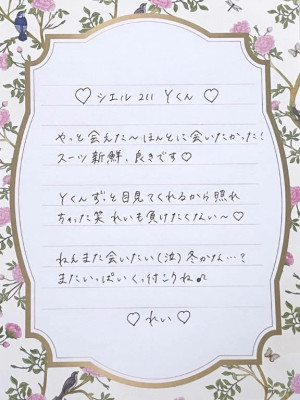 ♡ シエル 211 Yくん ♡
やっと会えた〜ほんとに会いたかった!
スーツ新鮮、良きです♡
Yくんずっと目見てくれるから照れ
ちゃった笑 れいも負けたくない〜♡
ねえまた会いたい(泣)冬かな…?
またいっぱいくっ付こうね♪
♡ れい ♡